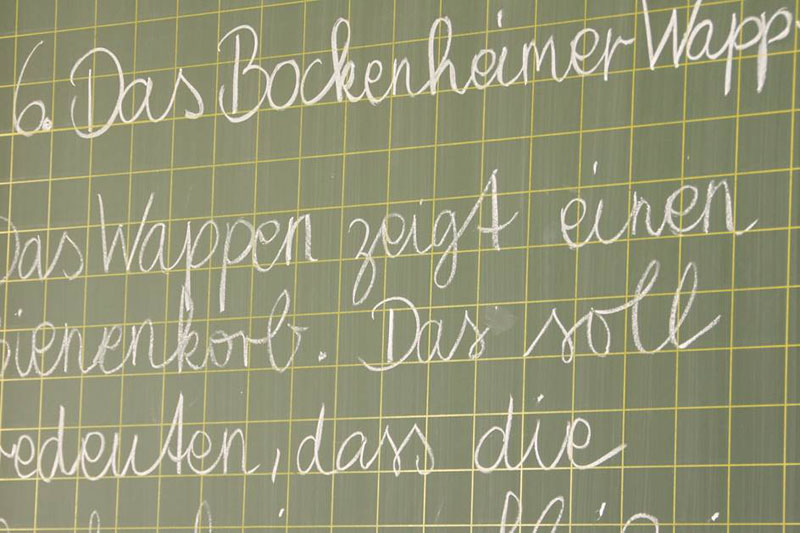 6. Das Bockenheimer Wapp
Das Wappen zeigt einen
Bienenkorb. Das soll
bedeuten, dass die